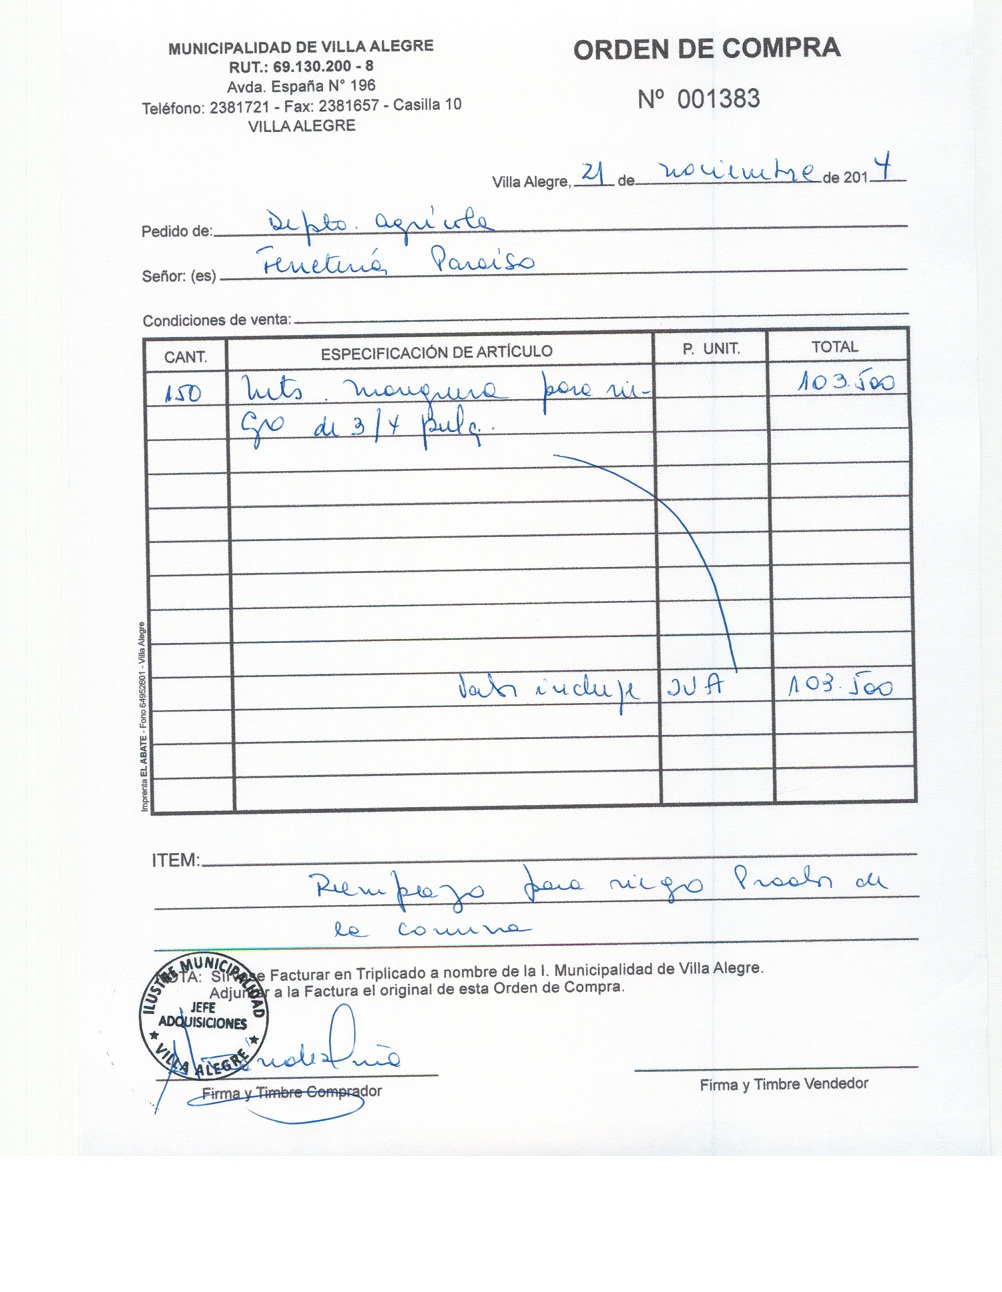 MUNICIPALIDAD DE VILLA ALEGRE
RUT.: 69.130.200 - 8
Avda. España N° 196
Teléfono: 2381721 - Fax: 2381657 - Casilla 10
VILLA ALEGRE
ORDEN DE COMPRA
Nº 001383
Villa Alegre, 21 de noviembre de 2014
Pedido de: Depto. agrícola
Señor: (es) Ferretería Paraiso
Condiciones de venta:
CANT. ESPECIFICACIÓN DE ARTÍCULO P. UNIT. TOTAL
150 mts. manguera para rie- 103.500
go de 3/4 pulg.
Valor incluye IVA 103.500
Imprenta EL ABATE - Fono 64952601 - Villa Alegre
ITEM:
para riego de
la comuna
NOTA: Sírvase Facturar en Triplicado a nombre de la I. Municipalidad de Villa Alegre.
Adjuntar a la Factura el original de esta Orden de Compra.
ILUSTRE MUNICIPALIDAD
JEFE
ADQUISICIONES
VILLA ALEGRE
Firma y Timbre Comprador
Firma y Timbre Vendedor